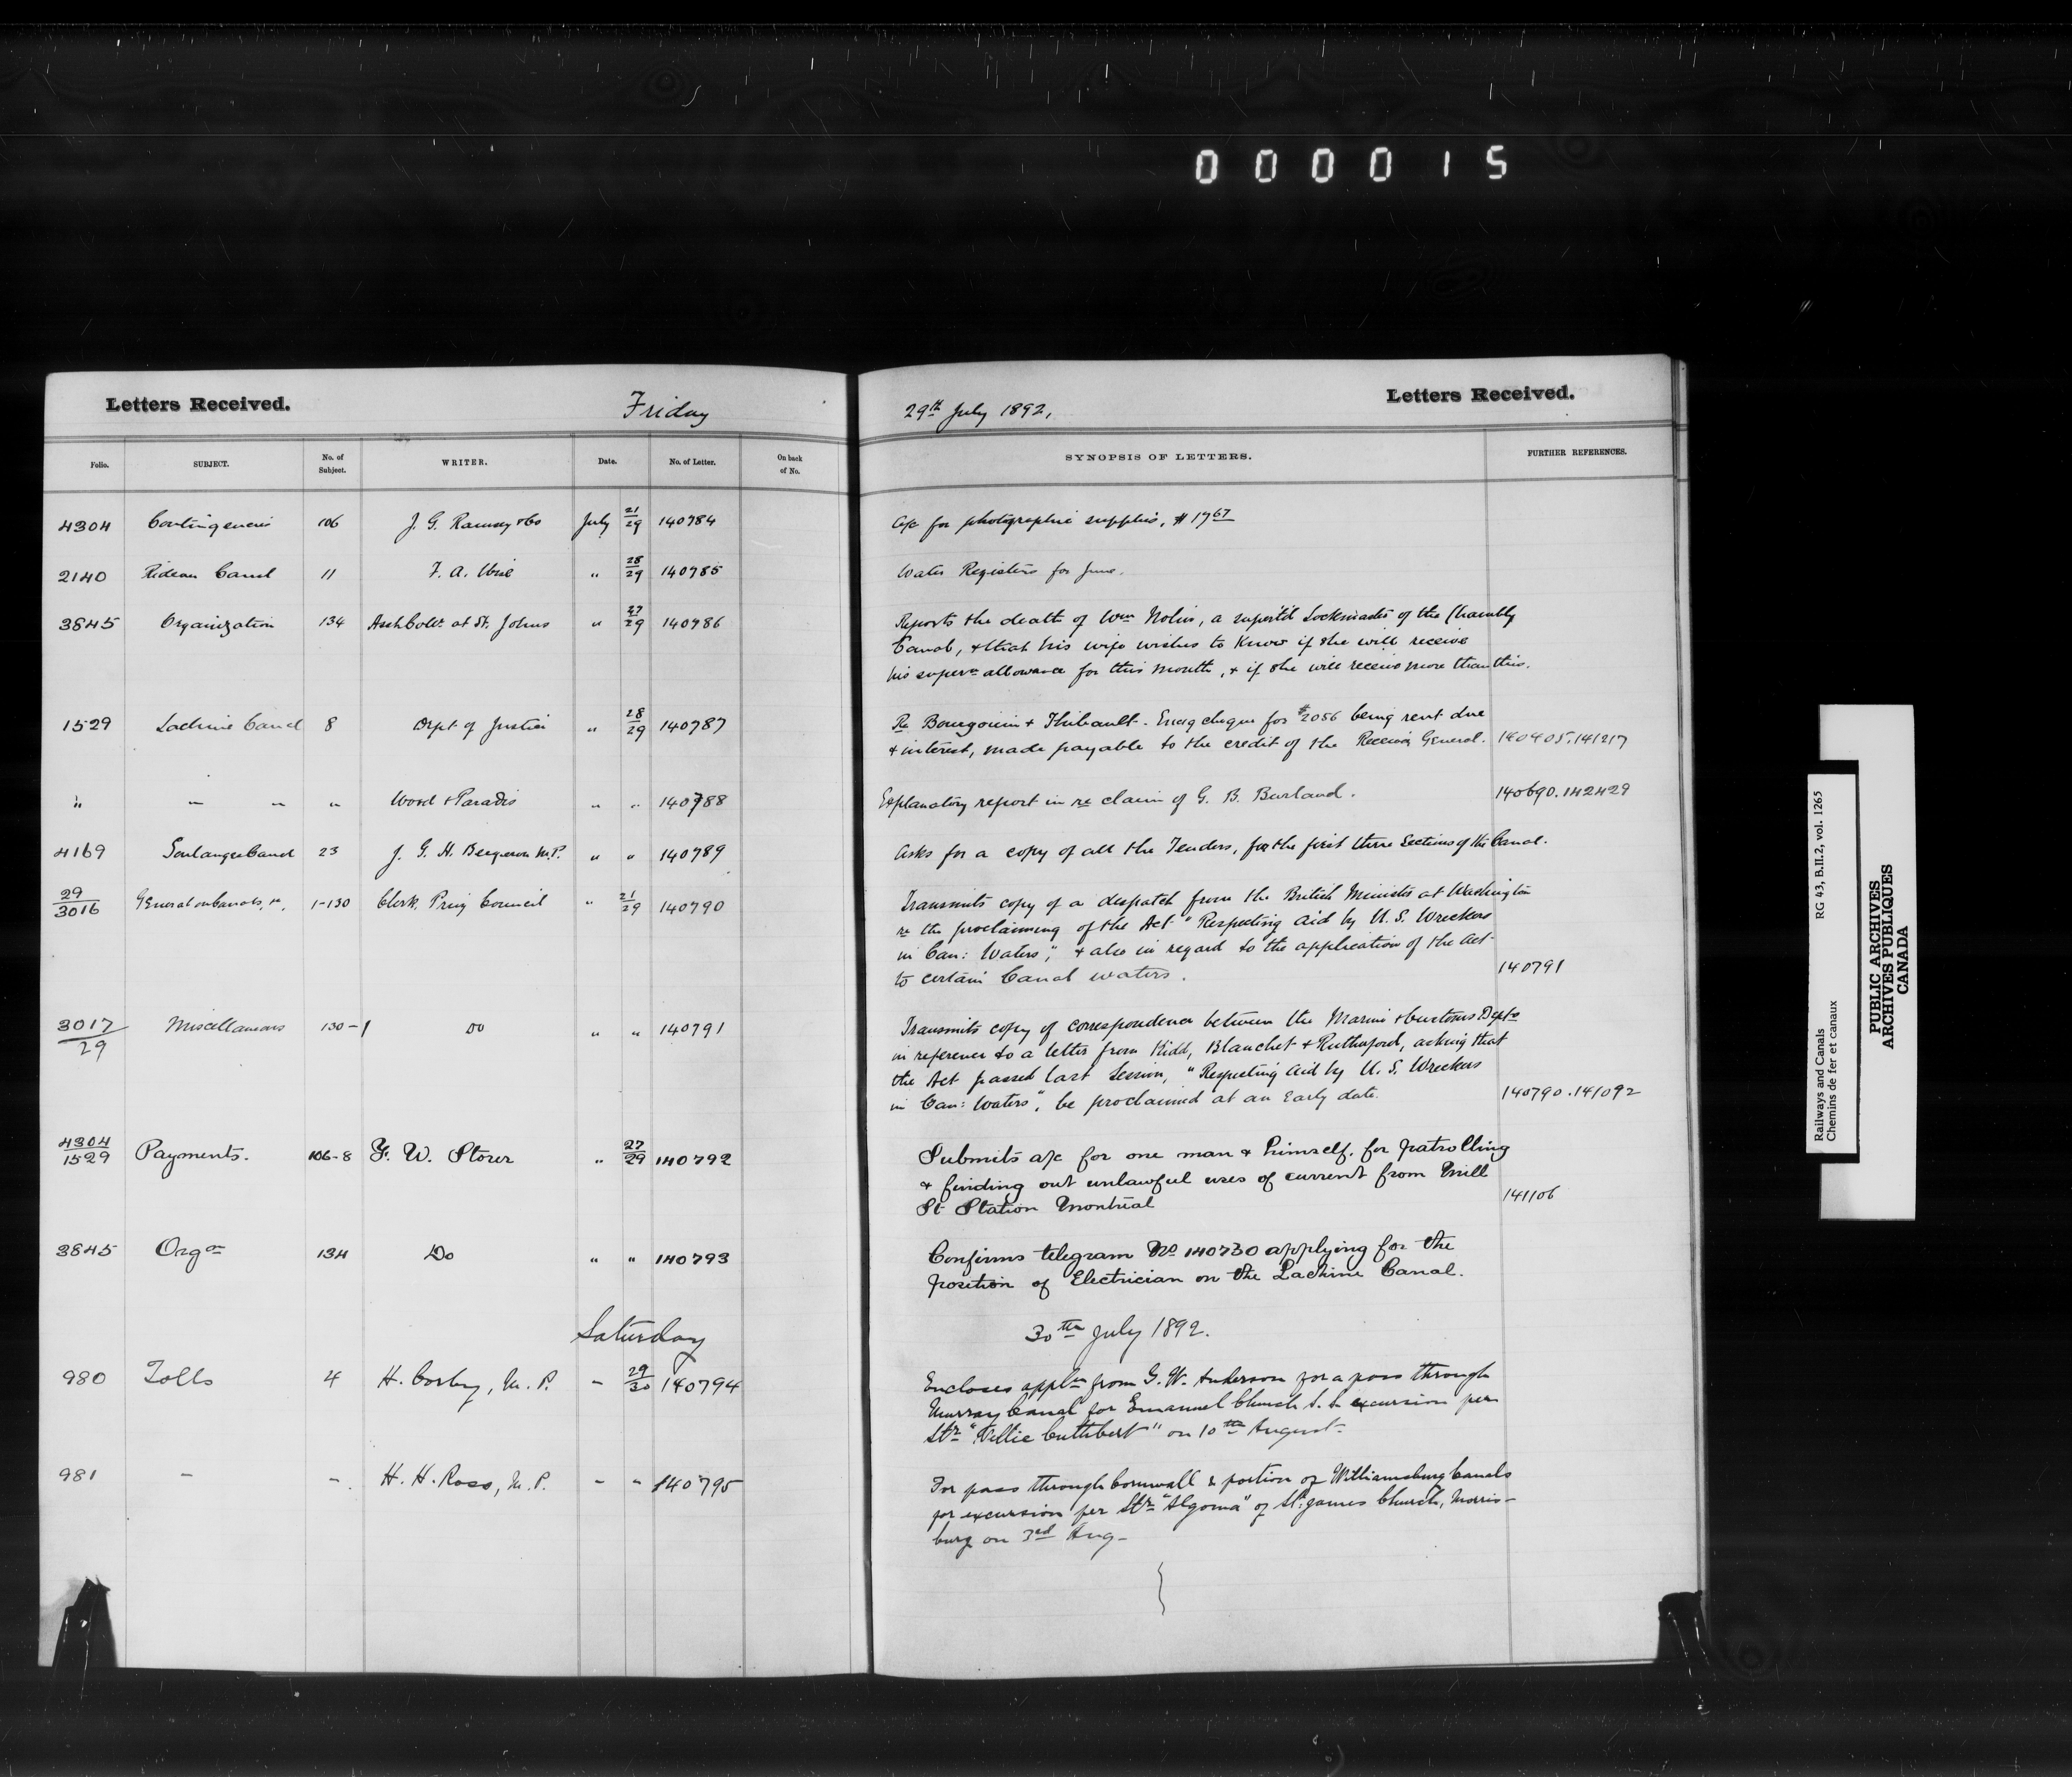 000015
Letters Received.
Friday
29th July 1892,
Letters Received.
Folio. SUBJECT. No. of Subject. WRITER. Date. No. of Letter. On back of No. SYNOPSIS OF LETTERS. FURTHER REFERENCES.
4304 Contingencies 106 J. G. Ramsey & Co July 21/29 140784 a/c for photographic supplies, $17 67
2140 Rideau Canal 11 F. A. Wise " 28/29 140785 Water Registers for June.
3845 Organization 134 at St. Johns " 27/29 140786 Reports the death of Wm Nolin, a Lockmaster of the Chambly
Canal, & that his wife wishes to know if she will receive
his superan allowance for this month, & if she will receive more than this.
1529 Lachine Canal 8 Dept of Justice " 28/29 140787 Re Bourgouin & Thibault. cheque for $2056 being rent due
& interest, made payable to the credit of the Receiver General. 140405.141217
" " " " Wood & Paradis " " 140788 Explanatory report in re claim of G. B. Burland. 140690.142429
4169 Soulanges Canal 23 J. G. H. Bergeron M.P. " " 140789 Asks for a copy of all the Tenders, for the first three Sections of this Canal.
29/3016 General on Canals, 1-130 Clerk, Privy Council " 21/29 140790 Transmits copy of a despatch from the British Minister at Washington
re the proclaiming of the Act "Respecting aid by U. S. Wreckers
in Can: Waters", & also in regard to the application of the Act
to certain Canal waters. 140791
3017/29 Miscellaneous 130-1 Do " " 140791 Transmits copy of correspondence between the Marine & Customs Depts
in reference to a letter from Kidd, Blanchet & Rutherford, asking that
the Act passed last Session, "Respecting Aid by U. S. Wreckers
in Can: Waters", be proclaimed at an Early date. 140790.141092
4304/1529 Payments. 106-8 F. W. Storer " 27/29 140792 Submits a/c for one man & himself, for patrolling
& finding out unlawful uses of current from Mill
St Station Montreal 141106
3845 Orgon 134 Do " " 140793 Confirms telegram No 140730 applying for the
position of Electrician on the Lachine Canal.
Saturday
30th July 1892.
980 Tolls 4 H. Corby, M. P. " 29/30 140794 Encloses appln from G. W. Anderson for a pass through
Murray Canal for Emanuel Church S. S. excursion per
Str "Nellie Cuthbert" on 10th August.
981 " " H. H. Ross, M. P. " " 140795 For pass through Cornwall & portion of Williamsburg Canals
for excursion per Str "Algoma" of St. James Church, Morris-
burg on 3rd Aug.
Railways and Canals RG 43, B.II.2, vol. 1265
Chemins de fer et canaux
PUBLIC ARCHIVES
ARCHIVES PUBLIQUES
CANADA